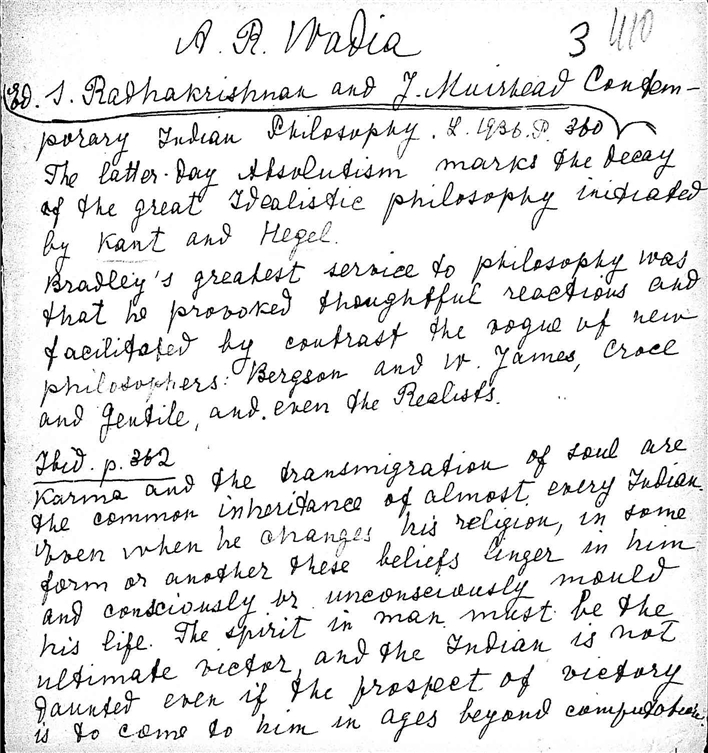 A. R. Wadia
3 410
Ed. S. Radhakrishnan and J. Muirhead Contem-
porary Indian Philosophy. L. 1936. P. 360
The latter-day Absolutism marks the decay
of the great Idealistic philosophy initiated
by Kant and Hegel.
Bradley's greatest service to philosophy was
that he provoked thoughtful reactions and
facilitated by contrast the vogue of new
philosophers: Bergson and W. James, Croce
and Gentile, and even the Realists.
Ibid. p. 362
Karma and the transmigration of soul are
the common inheritance of almost every Indian.
Even when he changes his religion, in some
form or another these beliefs linger in him
and consciously or unconsciously mould
his life. The spirit in man must be the
ultimate victor, and the Indian is not
daunted even if the prospect of victory
is to come to him in ages beyond computation.